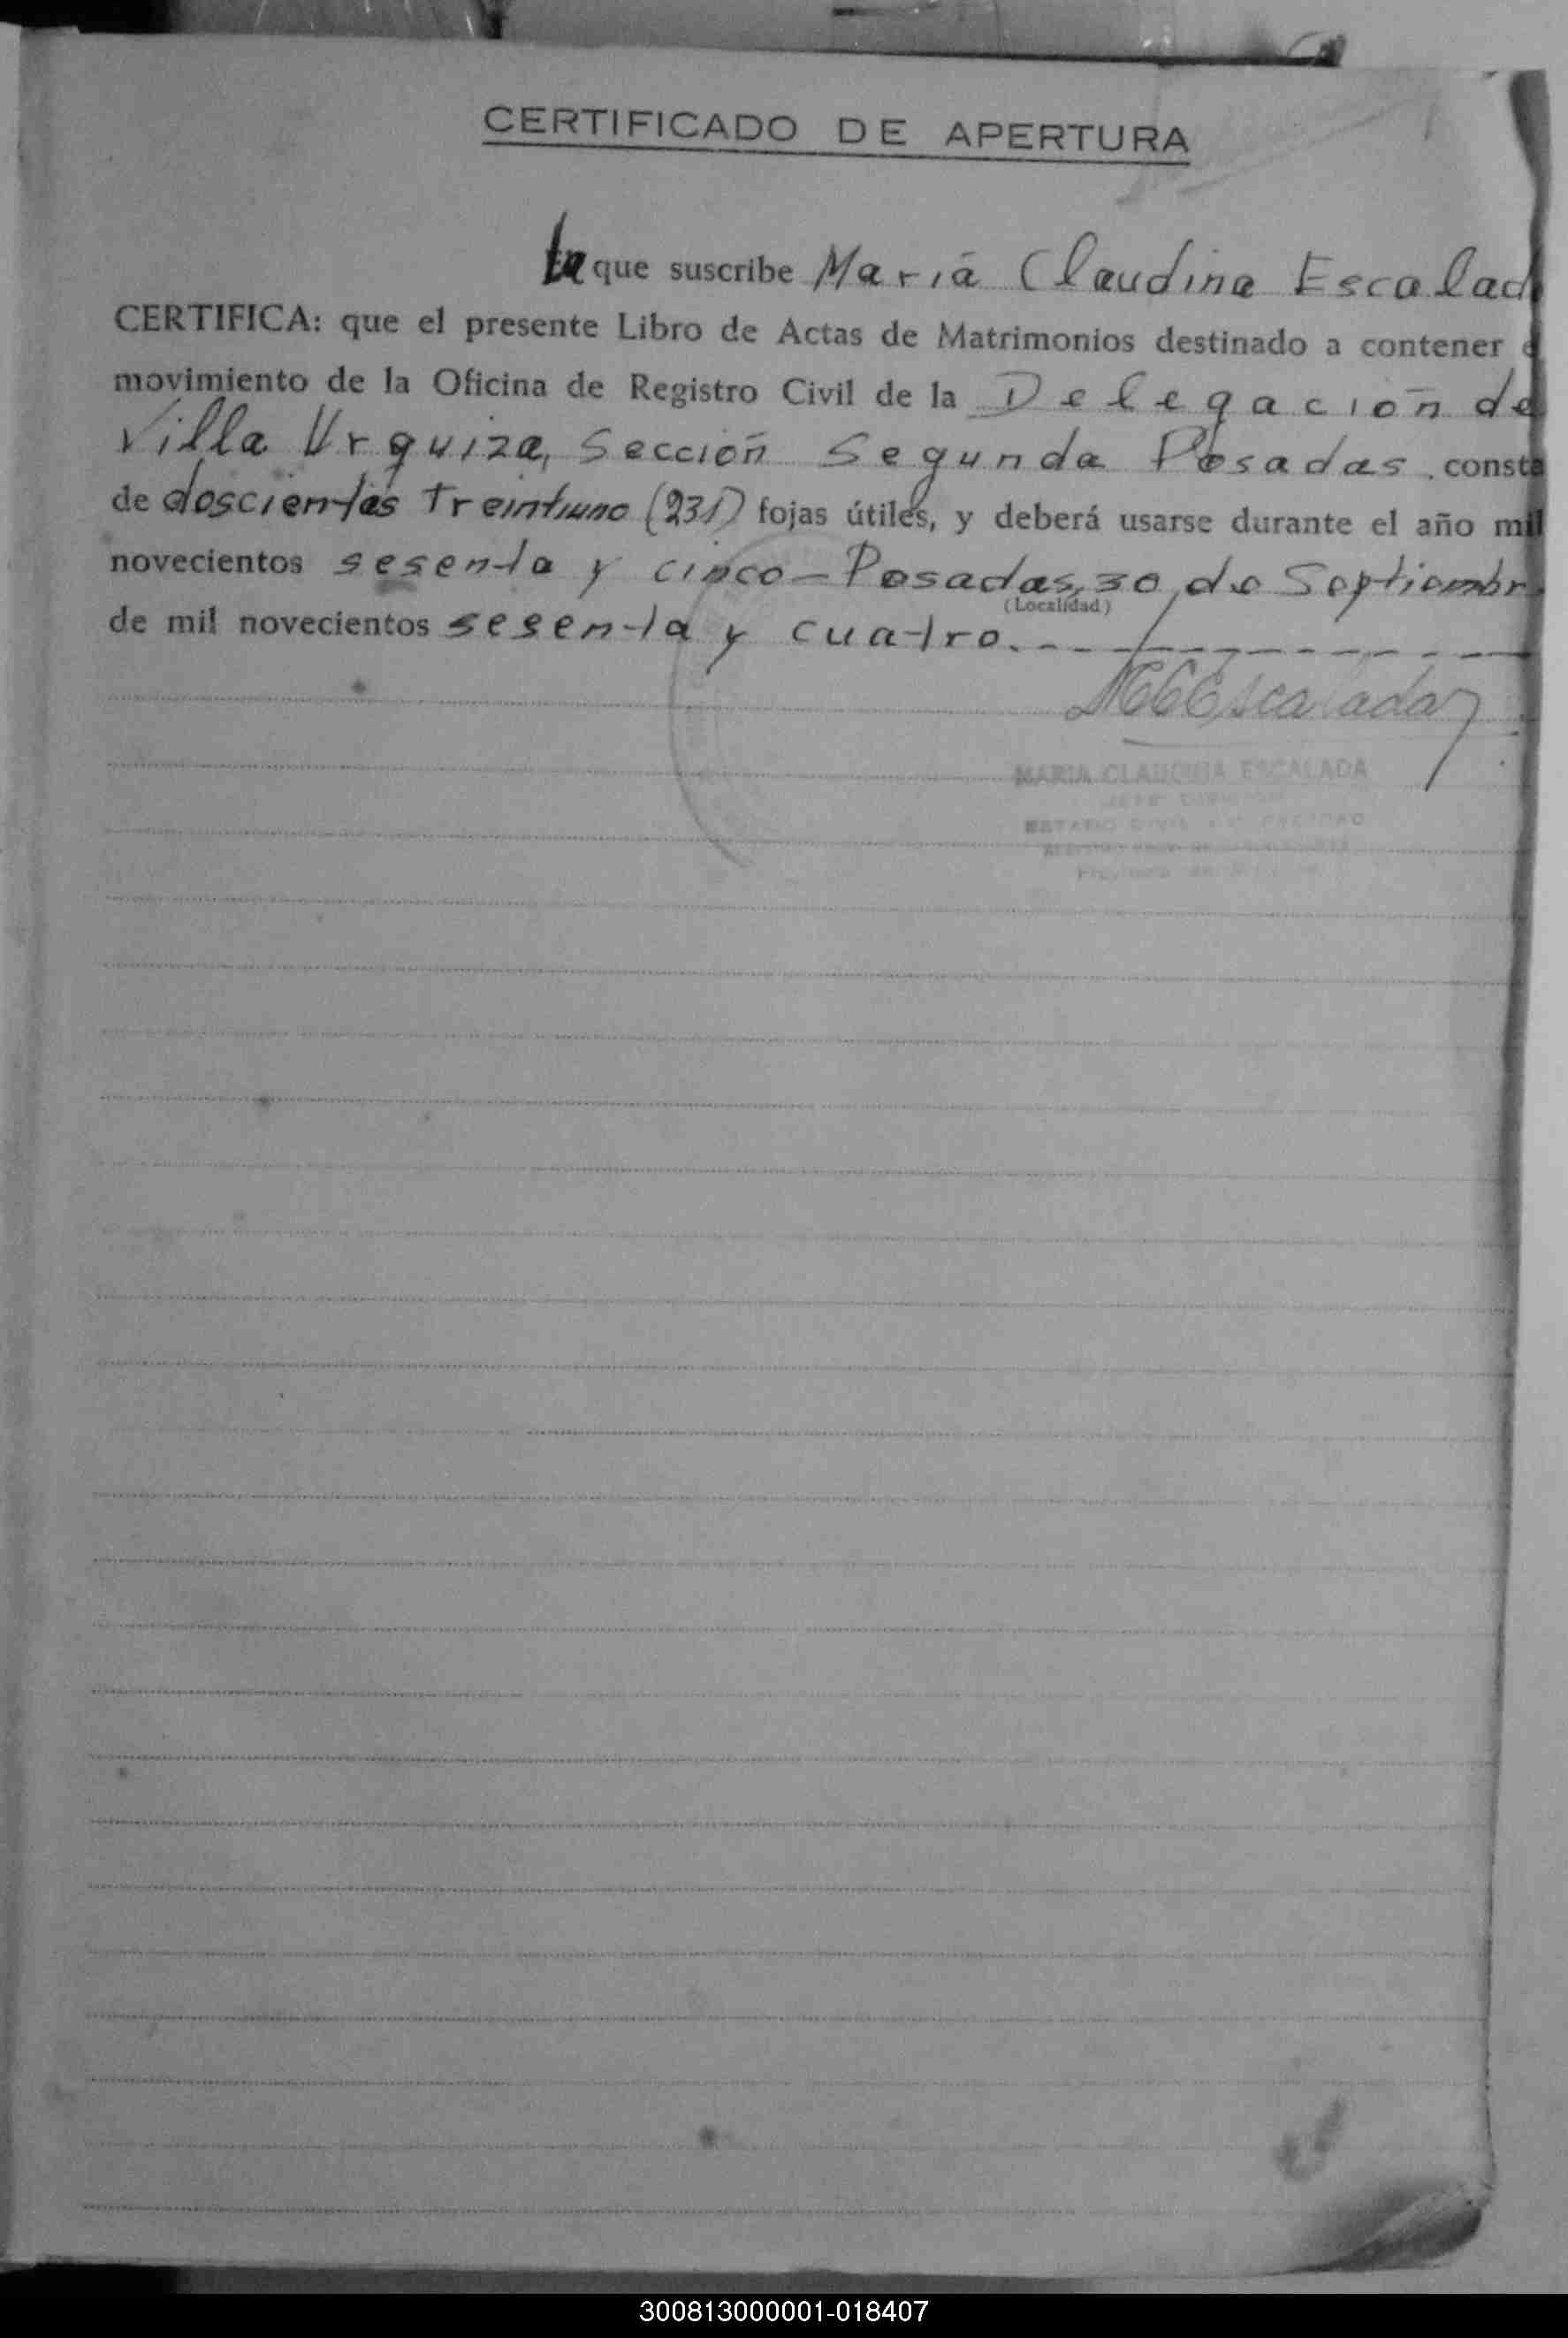 CERTIFICADO DE APERTURA
La que suscribe María Claudina Escalad
CERTIFICA: que el presente Libro de Actas de Matrimonios destinado a contener e
movimiento de la Oficina de Registro Civil de la Delegación de
Villa Urquiza, Sección Segunda Posadas. consta
de doscientas treintiuno (231) fojas útiles, y deberá usarse durante el año mil
novecientos sesenta y cinco - Posadas, 30 de Septiembr
(Localidad)
de mil novecientos sesenta y cuatro.
MCEscalada
MARIA CLAUDINA ESCALADA
ESTADO CIVIL
300813000001-018407